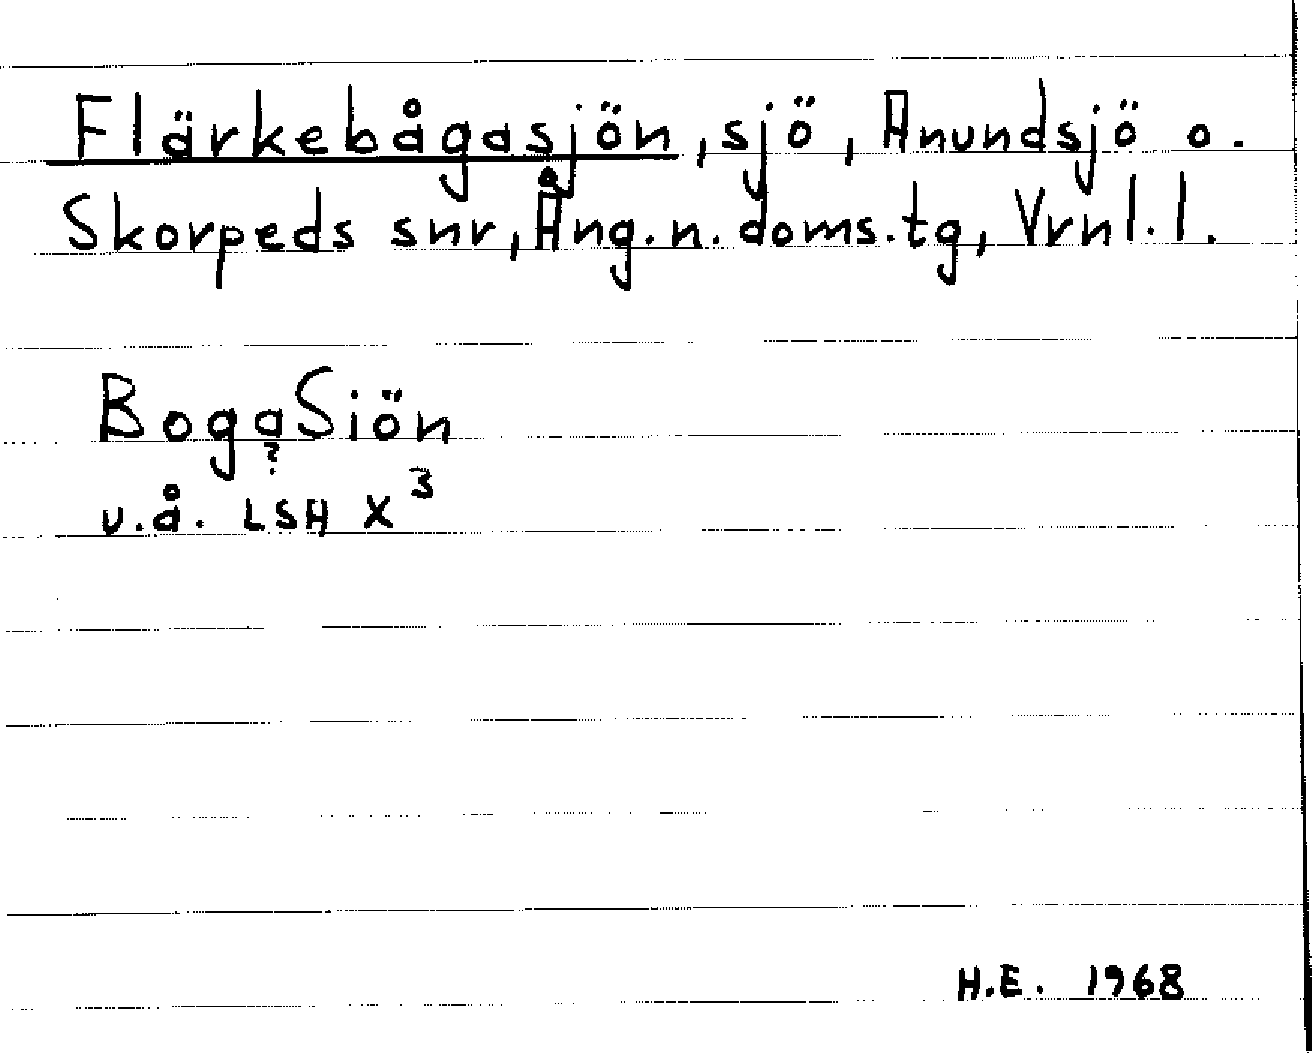 Flärkebågasjön, sjö, Anundsjö o.
Skorpeds snr, Ång.n. doms.tg, Vrnl.l.
BogaSiön
?
u.å. LSH X³
H.E. 1968